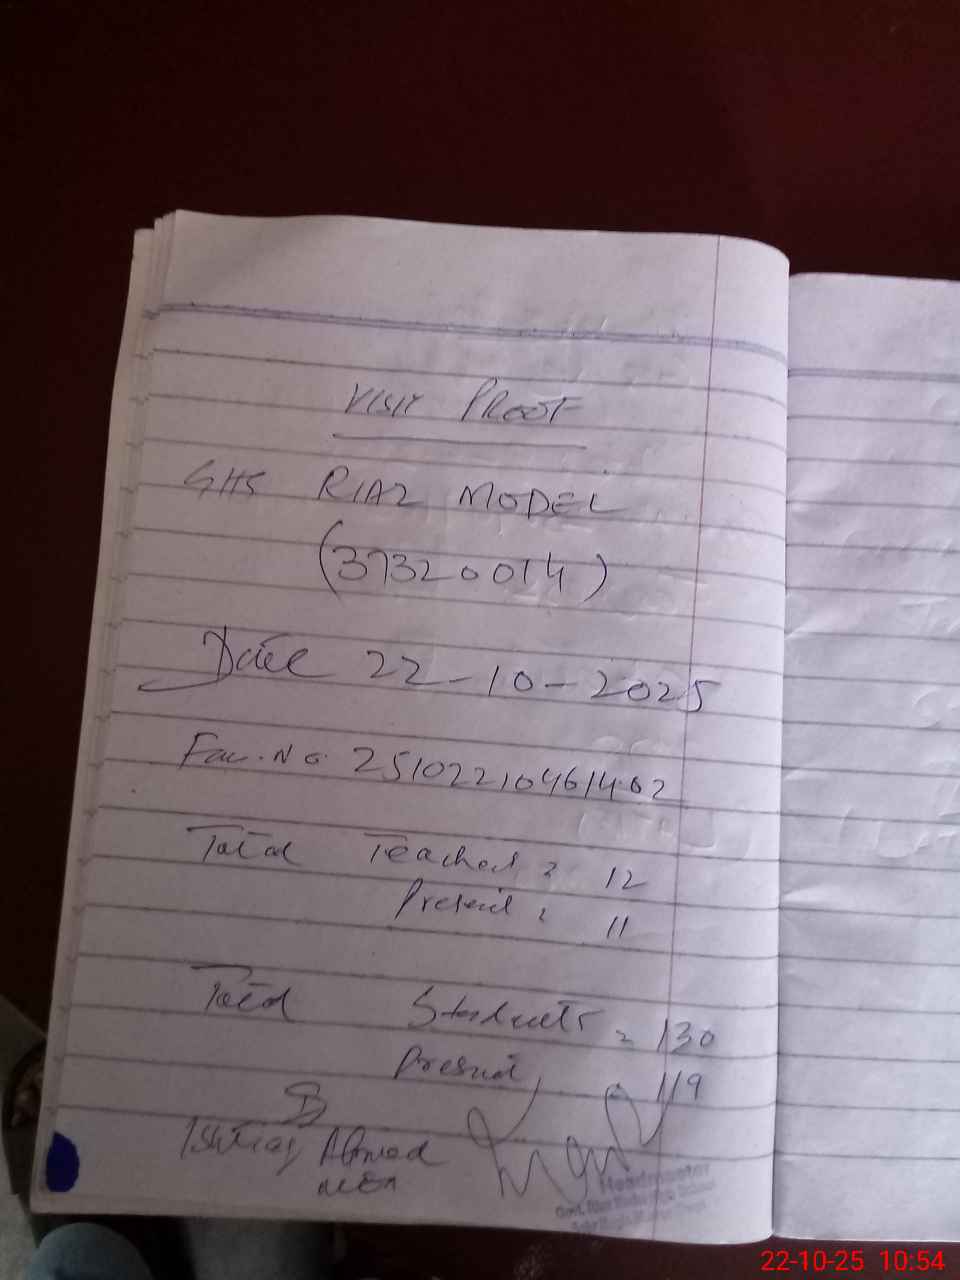 VISIT PROOF
GHS RIAZ MODEL
(37320014)
Date 22-10-2025
Fac. No. 25102210461402
Total Teachers = 12
Present = 11
Total Students = 130
Present = 119
Ishtiaq Ahmed
MEA
Headmaster
22-10-25 10:54